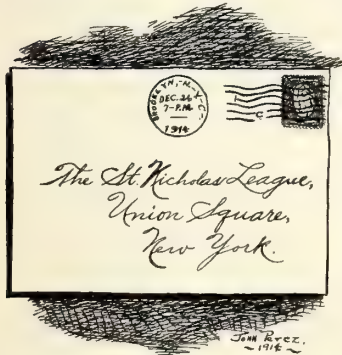 BROOKLYN, -N-Y-C-
DEC. 26
7-P.M.
1914
The St. Nicholas League,
Union Square,
New York.
John Perez.
~1914~